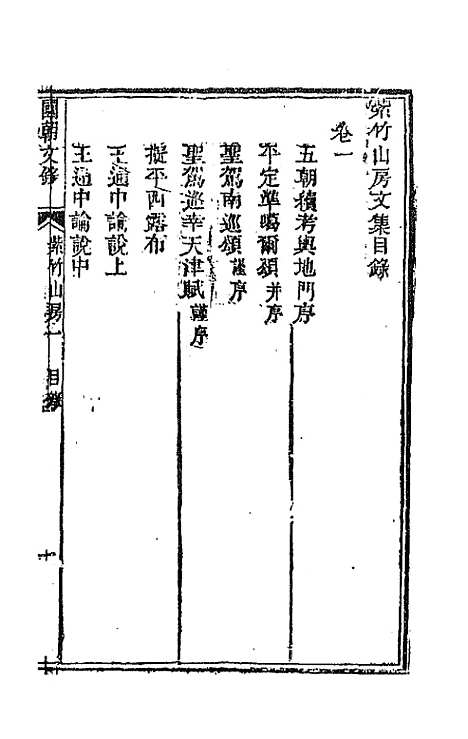 紫竹山房文集目錄
卷一
五朝續考輿地門序
平定準噶爾頌并序
聖駕南巡頌謹序
聖駕巡幸天津賦謹序
擬平西露布
王通中論說上
王通中論說中
國朝文錄 紫竹山房一 目錄 十